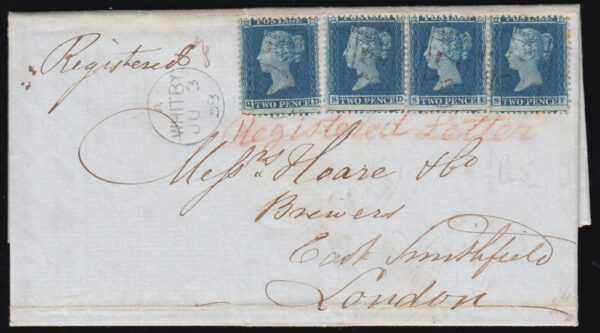 POSTAGE
TWO PENCE
POSTAGE
TWO PENCE
POSTAGE
TWO PENCE
POSTAGE
TWO PENCE
Registered
WHITBY
A
JU 3
58
Registered Letter
Messrs. Hoare & Co
Brewers
East Smithfield
London